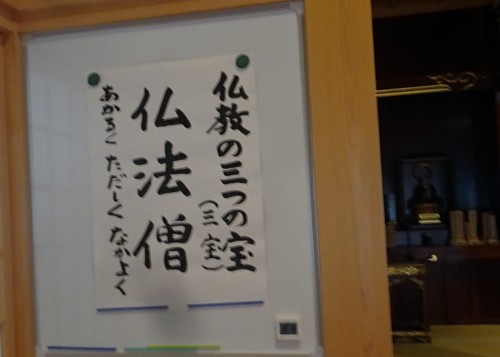 仏教の三つの宝
(三宝)
仏法僧
あかるく ただしく なかよく